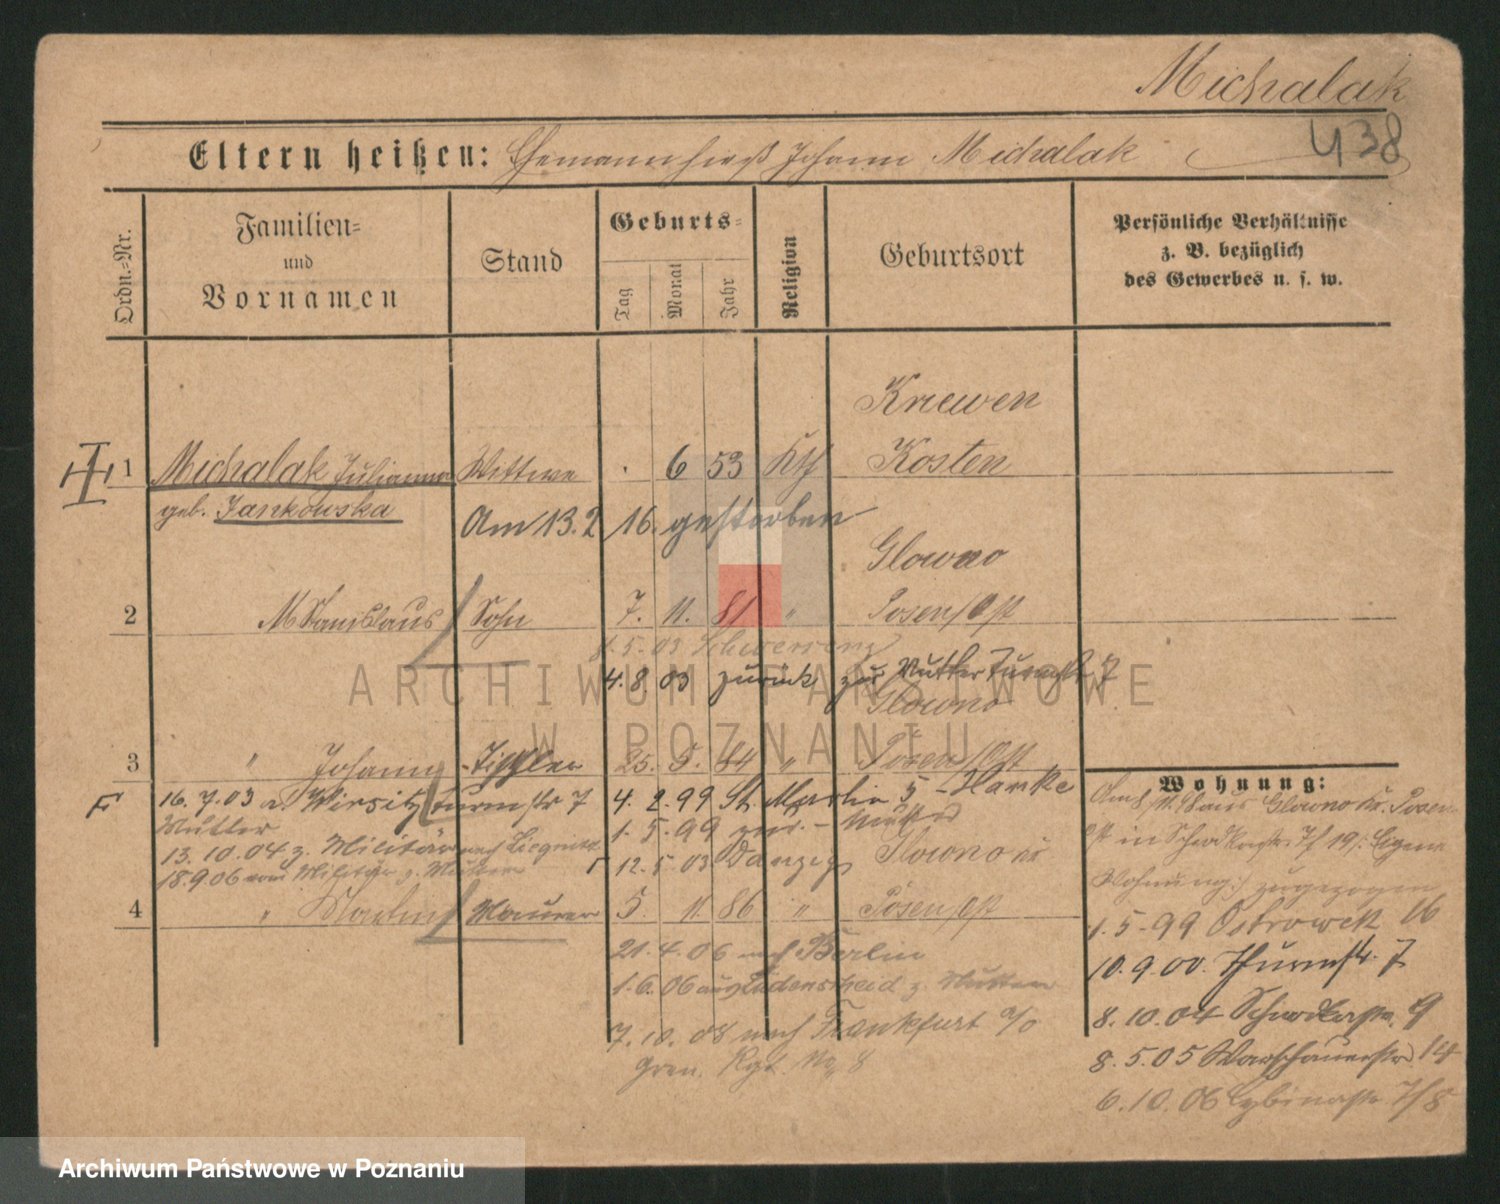 Michalak
438
Eltern heißen: Ehemann hieß Johann Michalak
Ordn.-Nr.
Familien-
und
Vornamen
Stand
Geburts-
Tag
Monat
Jahr
Religion
Geburtsort
Persönliche Verhältnisse
z. B. bezüglich
des Gewerbes u. s. w.
Kriewen
1 Michalak Julianna Wittwe . 6 53 Kth Kosten
geb. Jankowska
Am 13.2 16. gestorben
Glowno
2 M Stanislaus Sohn 7. 11. 81 " Posen/Ost
1.5.03 Schwersenz
4.8.03 zurück zur Mutter Turmstr 7
Glowno
3 " Johann Tischler 25. 5. 84 " Posen/Ost
16.7.03 a. Wirsitz Turmstr 7
Mutter
13.10.04 z. Militär nach Liegnitz
18.9.06 vom Militär z. Mutter
4.2.99 St. Martin 5 - Hanke
1.5.99 zur. - Mutter
12.5.03 Danzig
Glowno Kr
4 " Maurer 5. 11. 86 " Posen/Ost
21.4.06 nach Berlin
1.6.06 aus Lüdenscheid z. Mutter
7.10.08 nach Frankfurt a/O
Gren. Rgt. No 8
Wohnung:
Glowno Kr. Posen-
Ost in Schrodkastr. 7/19/: Eigene
Wohnung:) zugezogen
1.5.99 Ostrowek 16
10.9.00. Thurmstr. 7
8.10.04 Schrodkastr. 9
8.5.05 Warschauerstr 14
6.10.06 Cybinastr. 7/8
ARCHIWUM PAŃSTWOWE
W POZNANIU
Archiwum Państwowe w Poznaniu